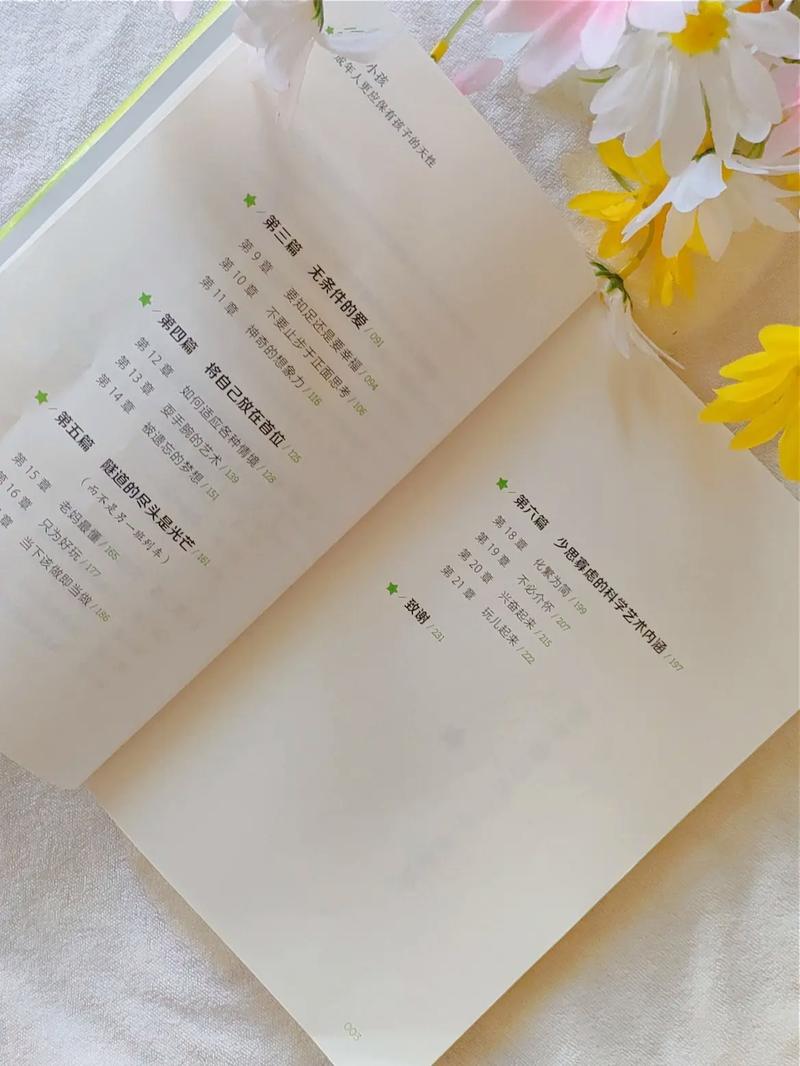 小孩
成年人更应保有孩子的天性
第三篇 无条件的爱 / 091
第 9 章 要知足还是要幸福 / 094
第 10 章 不要止步于正面思考 / 106
第 11 章 神奇的想象力 / 116
第四篇 将自己放在首位 / 125
第 12 章 如何适应各种情境 / 128
第 13 章 耍手腕的艺术 / 139
第 14 章 被遗忘的梦想 / 151
第五篇 隧道的尽头是光芒 / 161
（而不是另一班列车）
第 15 章 老妈最懂 / 165
第 16 章 只为好玩 / 177
章 当下该做即当做 / 186
第六篇 少思寡虑的科学艺术内涵 / 197
第 18 章 化繁为简 / 199
第 19 章 不必介怀 / 207
第 20 章 兴奋起来 / 215
第 21 章 玩儿起来 / 222
致谢 / 231
003